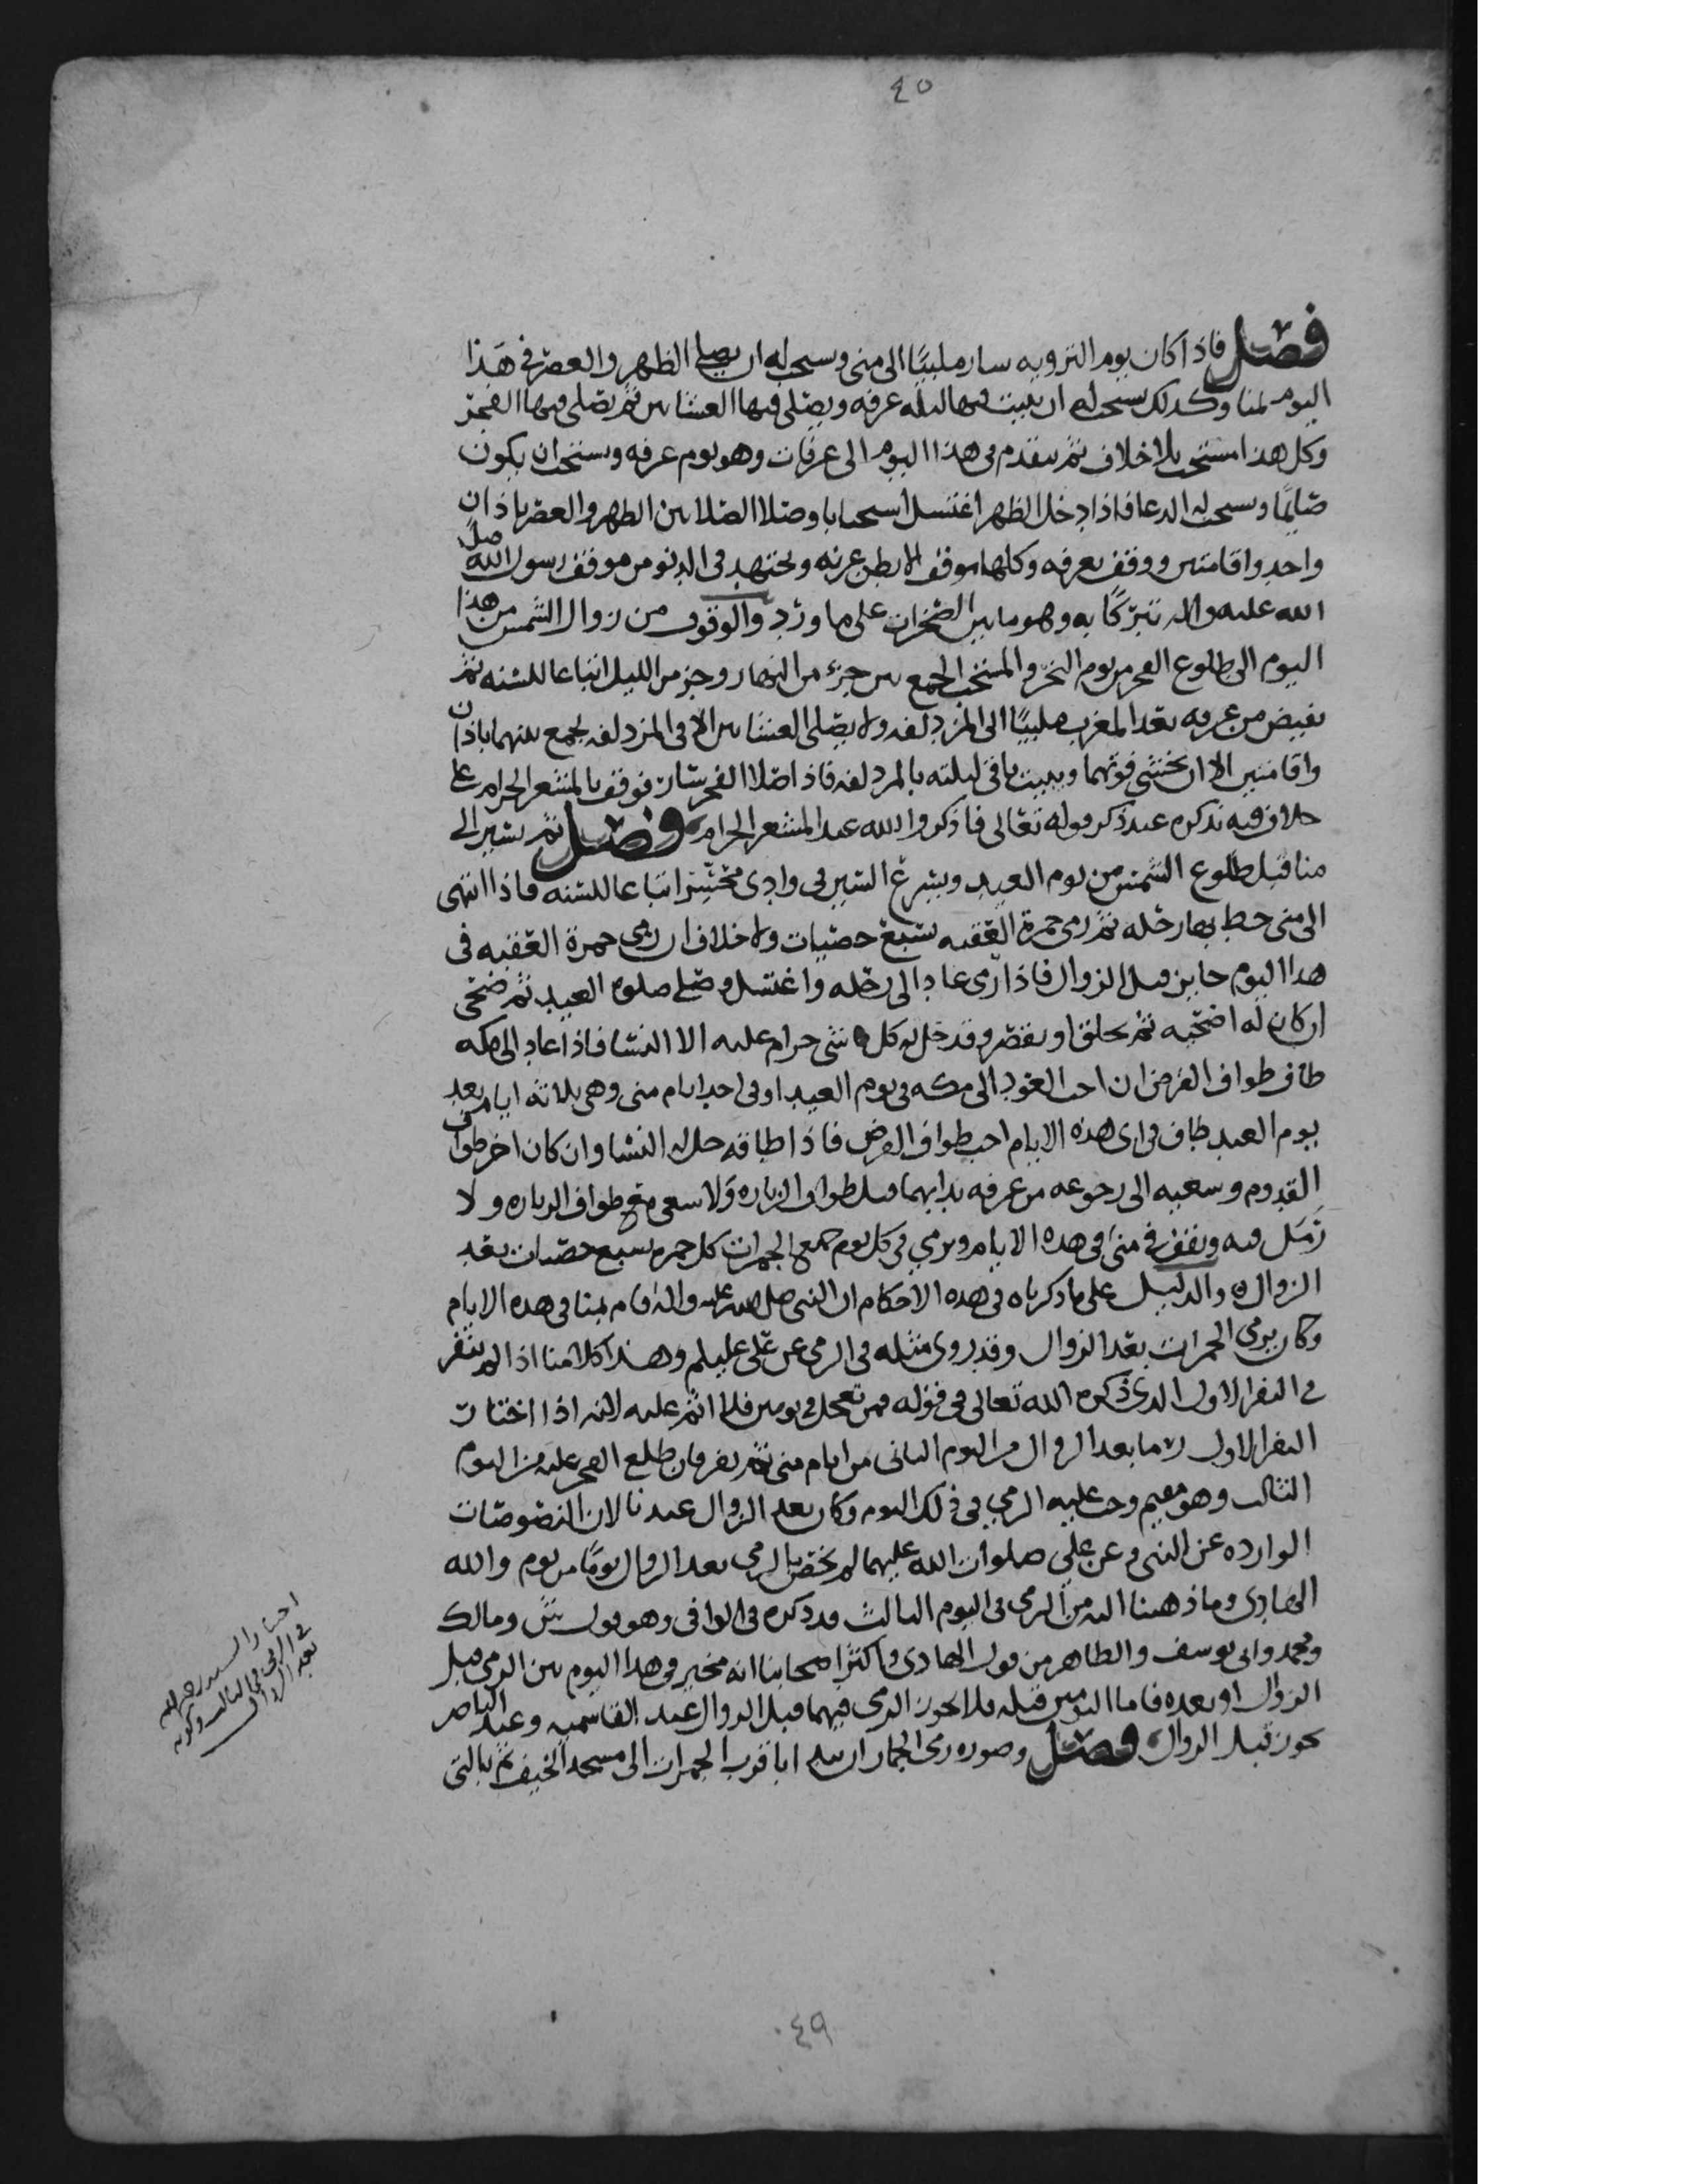 ٤٥
فصل فاذا كان يوم الترويه سار ملبيًا الى منى ويستحب له ان يصلي الظهر والعصر في هذا
اليوم بمنا وكذلك يستحب له ان يبيت فيها ليلة عرفه ويصلى فيها العشاين ثم يصلى فيها الفجر
وكل هذا مستحب بلا خلاف ثم يتقدم في هذا اليوم الى عرفات وهو يوم عرفه ويستحب ان يكون
صايمًا ويستحب له الدعا فاذا دخل الظهر اغتسل استحبابا وصلا الصلاتين الظهر والعصر باذان
واحد واقامتين ووقف بعرفه وكلها موقف الا بطن عرنه ويجتهد في الدنو من موقف رسول الله صلى
الله عليه واله تبركًا به وهو ما بين الصخرات على ما ورد والوقوف من زوال الشمس من هذا
اليوم الى طلوع الفجر من يوم النحر والمستحب الجمع بين جزء من النهار وجز من الليل اتباعا للسنه ثم
يفيض من عرفه بعد المغرب ملبيًا الى المزدلفه ولا يصلى العشاين الا في المزدلفه يجمع بينهما باذان
واقامتين الا ان يخشى فوتهما ويبيت باقى ليلته بالمزدلفه فاذا صلا الفجر سار فوقف بالمشعر الحرام على
خلاف فيه نذكره عند ذكر قوله تعالى فاذكروا الله عند المشعر الحرام فصل ثم يسير الى
منا قبل طلوع الشمس من يوم العيد ويسرع السير في وادى محسر اتباعا للسنه فاذا انتهى
الى منى حط بها رحله ثم رمى جمرة العقبه بسبع حصيات ولا خلاف ان رمى جمرة العقبه في
هذا اليوم جايز قبل الزوال فاذا رمى عاد الى رحله واغتسل وصلى صلوة العيد ثم ضحى
ان كان له اضحيه ثم يحلق او يقصر وقد حل له كل شى حرام عليه الا النسا فاذا عاد الى مكه
طاف طواف الفرض ان احب العود الى مكه في يوم العيد او في احد ايام منى وهى ثلاثه ايام بعد
يوم العيد طاف في اى هذه الايام احب طواف الفرض فاذا طافه حل له النسا وان كان اخر طواف
القدوم وسعيه الى رجوعه من عرفه بدا بهما قبل طواف الزياره ولا سعى مع طواف الزياره ولا
رَمَل فيه ويقف في منى في هذه الايام ويرمي في كل يوم جميع الجمرات كل جمره بسبع حصيات بعد
الزوال والدليل على ما ذكرناه في هذه الاحكام ان النبي صلى الله عليه واله اقام بمنا في هذه الايام
وكان يرمى الجمرات بعد الزوال وقد روى مثله في الرمى عن على عليلم وهذا كلامنا اذا لم ينفر
في النفر الاول الذى ذكره الله تعالى في قوله فمن تعجل في يومين فلا اثم عليه لانه اذا اختار
النفر الاول رما بعد الزوال من اليوم الثانى من ايام منى ثم نفر فان طلع الفجر عليه من اليوم
الثالث وهو مقيم وجب عليه الرمي في ذلك اليوم وكان بعد الزوال عندنا لان النصوصات
الوارده عن النبي وعن علي صلوات الله عليهما لم يختص بالرمى بعد الزوال يومًا من يوم والله
الهادى وما ذهبنا اليه من الرمى في اليوم الثالث قد ذكره في الوافى وهو قول ش ومالك
ومحمد وابى يوسف والظاهر من قول الهادى واكثر اصحابنا انه مخير في هذا اليوم بين الرمى قبل
الزوال او بعده فاما اليومين قبله فلا يجوز الرمى فيهما قبل الزوال عند القاسميه وعند الناصر
يجوز قبل الزوال فصل وصوره رمى الجمار ان يبدا باقرب الجمرات الى مسجد الخيف ثم بالتى
اختار السيد رحمه الله
في الرمى في الثالث وكونه
بعد الزوال
٤٩